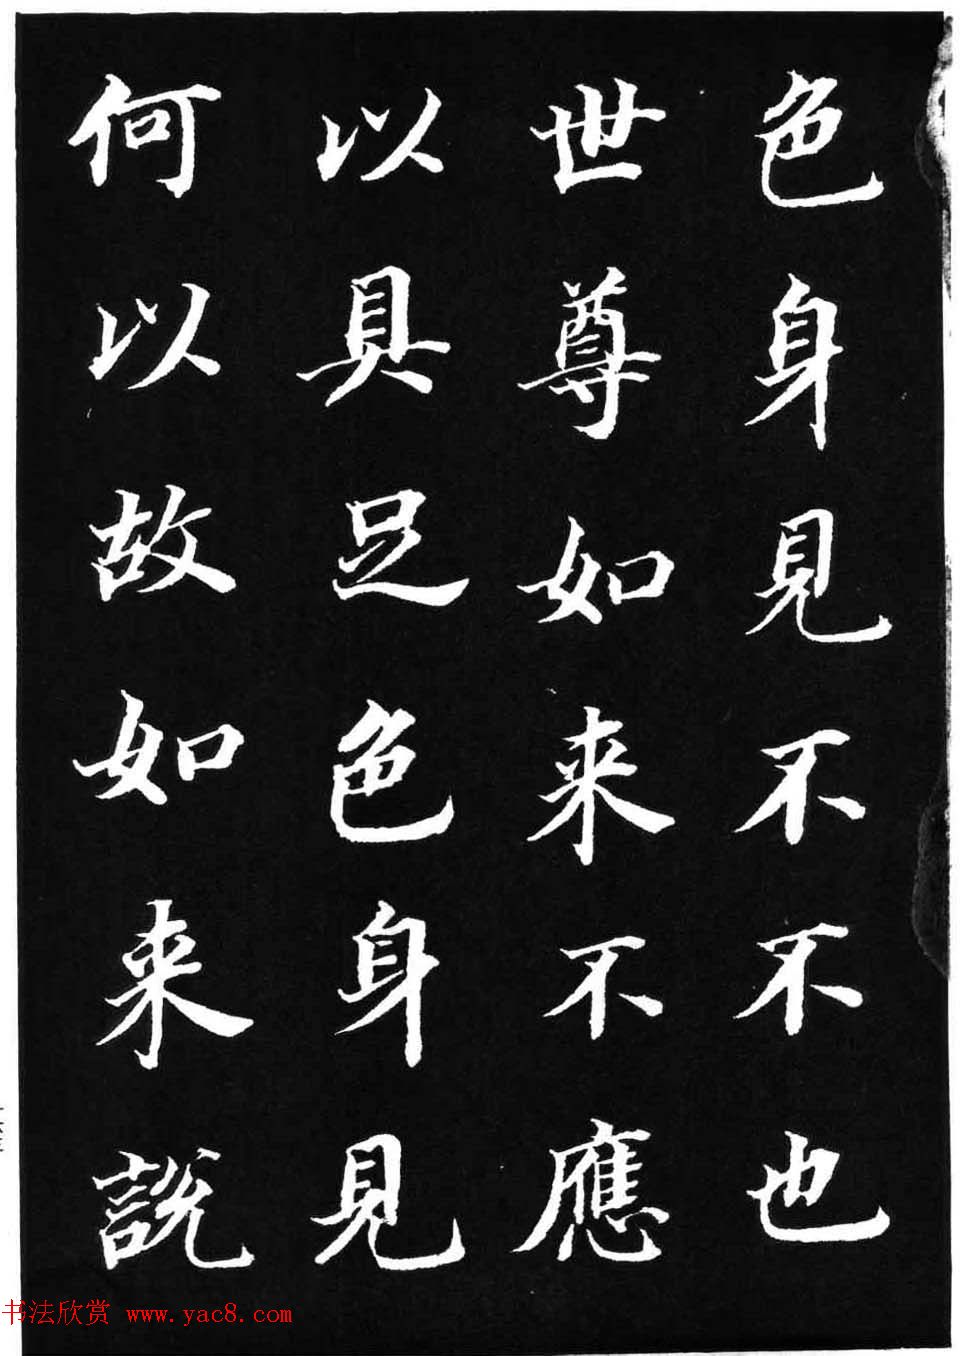 色身見不不也
世尊如来不應
以具足色身見
何以故如来説
书法欣赏 www.yac8.com